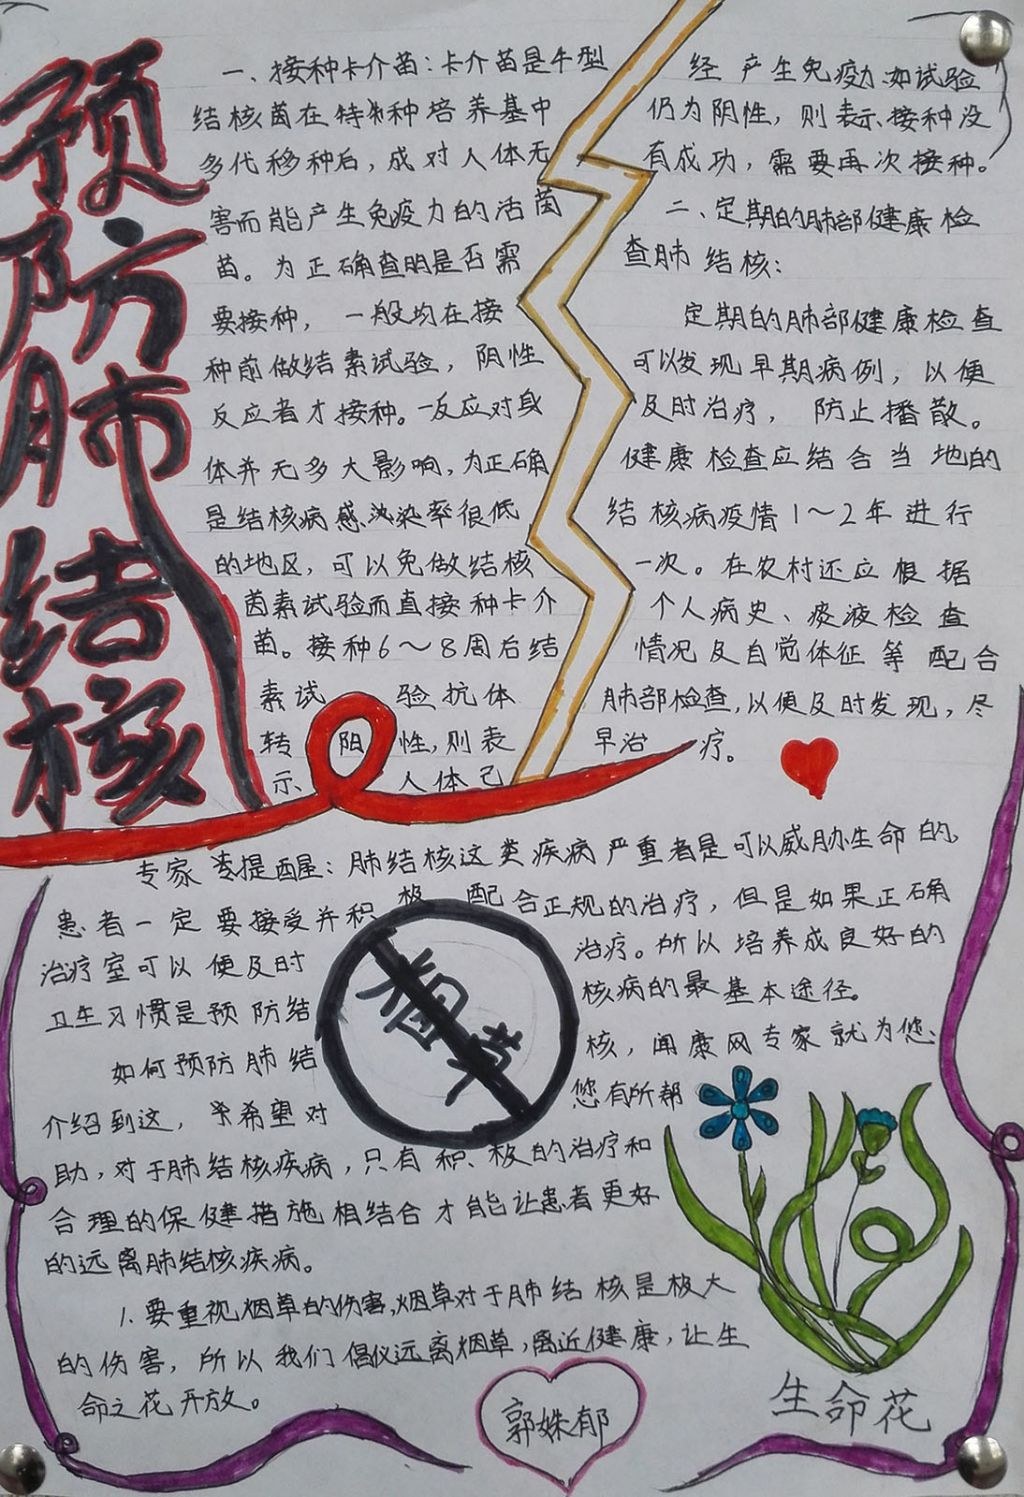 预防肺结核
一、接种卡介苗：卡介苗是牛型
结核菌在特殊种培养基中
多代移种后，成对人体无
害而能产生免疫力的活菌
苗。为正确查明是否需
要接种，一般均在接
种前做结素试验，阴性
反应者才接种。一反应对身
体并无多大影响，为正确
是结核病感染率很低
的地区，可以免做结核
菌素试验而直接种卡介
苗。接种6～8周后结
素试验抗体
转阳性，则表
示人体已
经产生免疫力：如试验
仍为阴性，则表示接种没
有成功，需要再次接种。
二、定期的肺部健康检
查肺结核：
定期的肺部健康检查
可以发现早期病例，以便
及时治疗，防止播散。
健康检查应结合当地的
结核病疫情1～2年进行
一次。在农村还应根据
个人病史、痰液检查
情况及自觉体征等配合
肺部检查，以便及时发现，尽
早治疗。
专家提醒：肺结核这类疾病严重者是可以威胁生命的，
患者一定要接受并积极配合正规的治疗，但是如果正确
治疗室可以便及时治疗。所以培养成良好的
卫生习惯是预防结核病的最基本途径。
如何预防肺结核，闻康网专家就为您
介绍到这，希望对您有所帮
助，对于肺结核疾病，只有积极的治疗和
合理的保健措施相结合才能让患者更好
的远离肺结核疾病。
1.要重视烟草的伤害，烟草对于肺结核是极大
的伤害，所以我们倡仪远离烟草，离近健康，让生
命之花开放。
生命花
郭姝郁